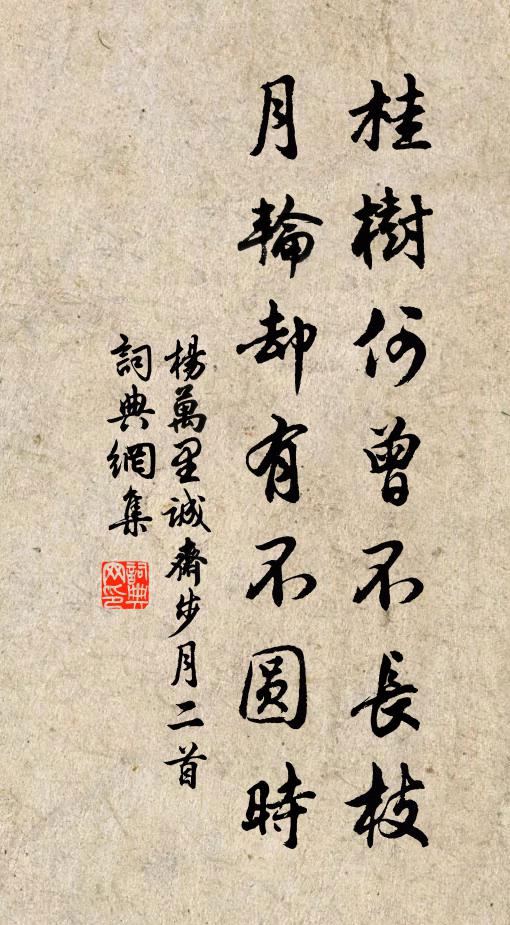 桂樹何曾不長枝
月輪却有不圆時
楊萬里誠齋步月二首
詞典網集
詞典网印